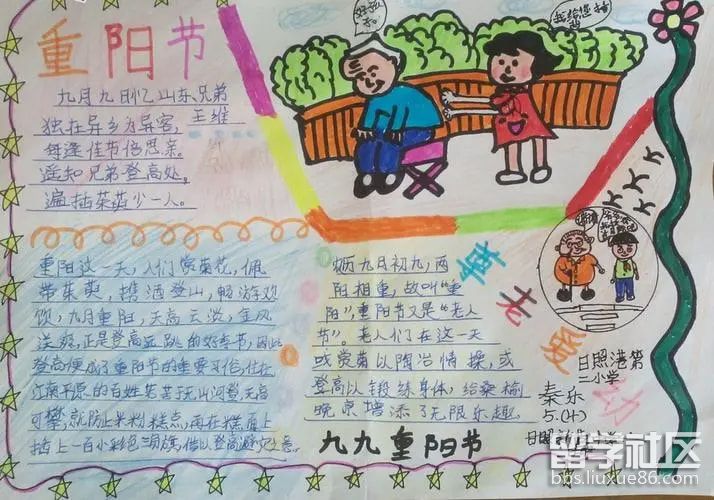 重阳节
九月九日忆山东兄弟
王维
独在异乡为异客，
每逢佳节倍思亲。
遥知兄弟登高处，
遍插茱萸少一人。
我给您捶
重阳这一天，人们赏菊花，佩
带茱萸，携酒登山，畅游欢
饮，九月重阳，天高云淡，金风
送爽，正是登高远跳的好季节，因此
登高便成了重阳节的重要习俗，住在
江南平原的百姓苦于无山可登，无高
可攀，就
米粉糕点，再在糕面上
插上一
小彩色
旗，借以登高避
九月初九，两
阳相重，故叫“重
阳”，重阳节又是“老人
节”。老人们在这一天
或赏菊以陶冶情操，或
登高以锻练身体，给桑榆
晚景增添了无限乐趣。
九九重阳节
尊老爱幼
日照港第
二小学
秦乐
留学社区
bbs.liuxue86.com